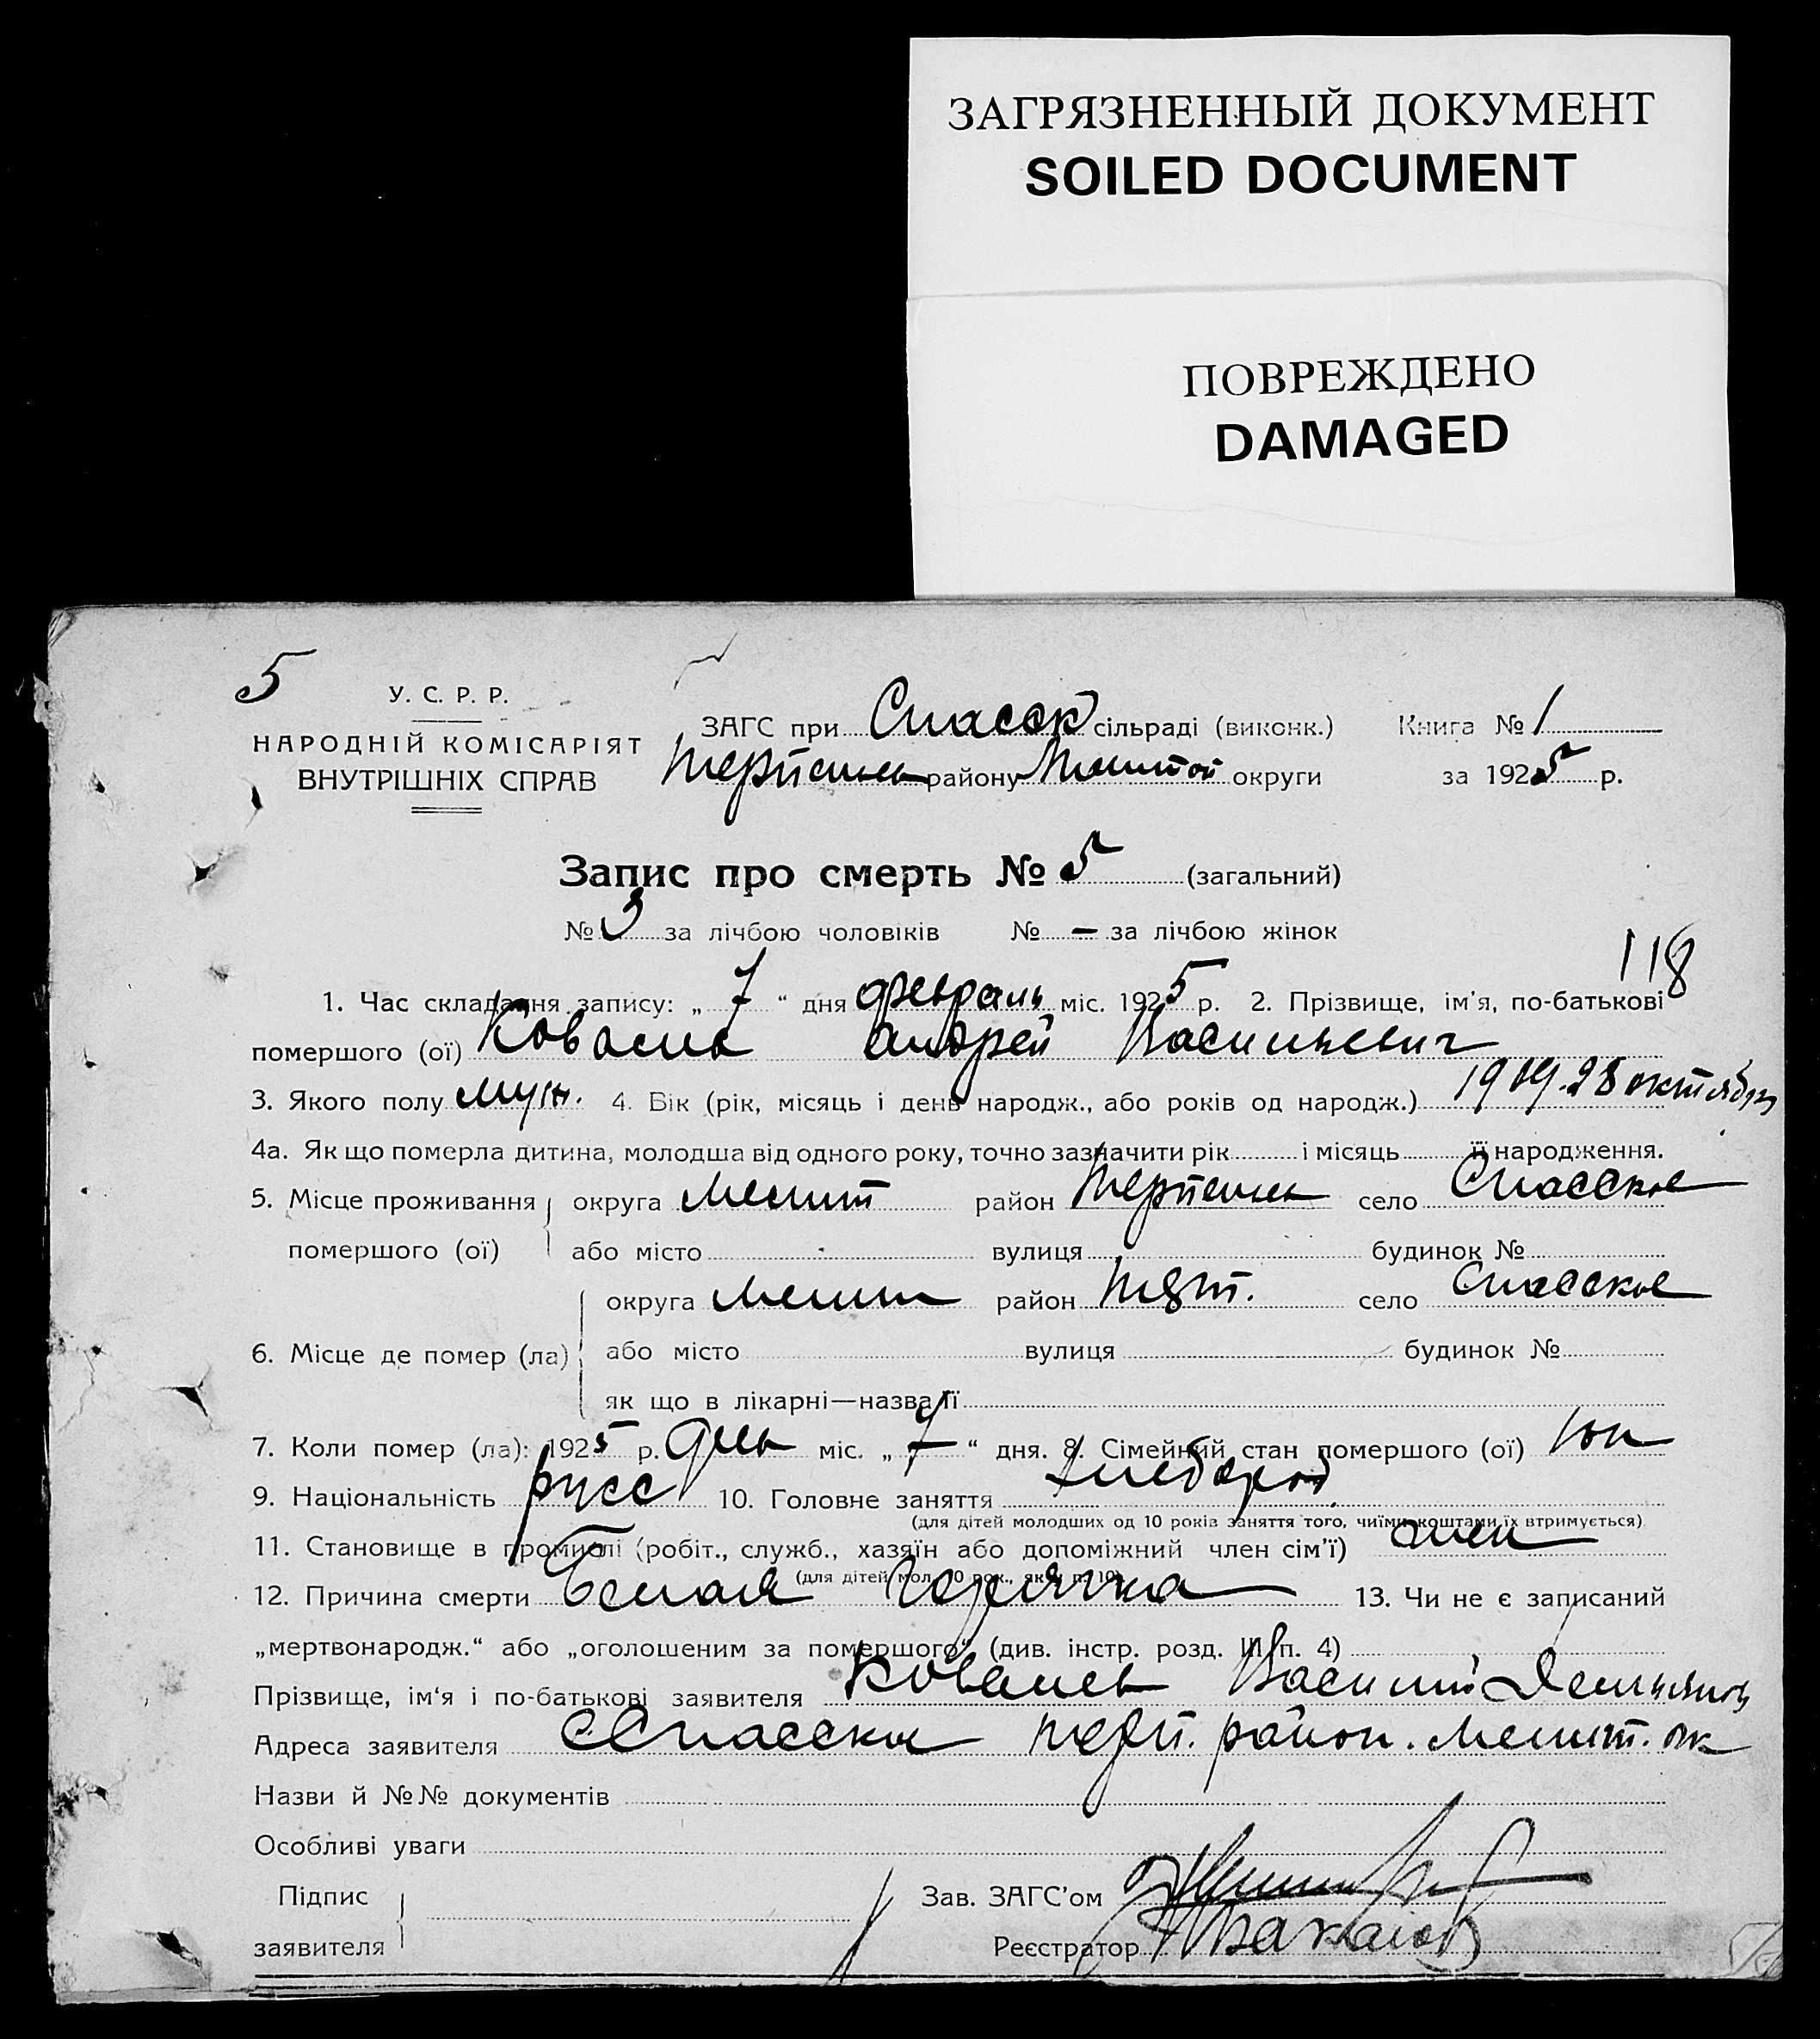 ЗАГРЯЗНЕННЫЙ ДОКУМЕНТ
SOILED DOCUMENT
ПОВРЕЖДЕНО
DAMAGED
5
У. С. Р. Р.
НАРОДНІЙ КОМІСАРІЯТ
ВНУТРІШНІХ СПРАВ
ЗАГС при Спасск сільраді (виконк.) Книга № 1
району округи за 1925 р.
Запис про смерть № 5 (загальний)
№ 3 за лічбою чоловіків № – за лічбою жінок
118
1. Час складання запису: „ 7 “ дня февраль міс. 1925 р. 2. Прізвище, ім'я, по-батькові
помершого (ої) Андрей Васильевич
3. Якого полу муж. 4. Вік (рік, місяць і день народж., або років од народж.) 1909. 28 октября
4а. Як що померла дитина, молодша від одного року, точно зазначити рік і місяць її народження.
5. Місце проживання округа Мелит район село Спасское
помершого (ої) або місто вулиця будинок №
округа Мелит район село Спасское
6. Місце де помер (ла) або місто вулиця будинок №
як що в лікарні—назва її
7. Коли помер (ла): 1925 р. міс. „ 7 “ дня. 8. Сімейний стан помершого (ої)
9. Національність русс 10. Головне заняття хлебороб
(для дітей молодших од 10 років заняття того, чиїми коштами їх втримується)
11. Становище в промислі (робіт., служб., хазяїн або допоміжний член сім'ї) член
(для дітей мол. 10 рок., як в п. 10)
12. Причина смерти Белая Горячка 13. Чи не є записаний
„мертвонародж.“ або „оголошеним за помершого“ (див. інстр. розд. III п. 4)
Прізвище, ім'я і по-батькові заявителя Василий
Адреса заявителя с Спасское Терп. район. Мелит. ок
Назви й №№ документів
Особливі уваги
Підпис
заявителя
Зав. ЗАГС'ом
Реєстратор